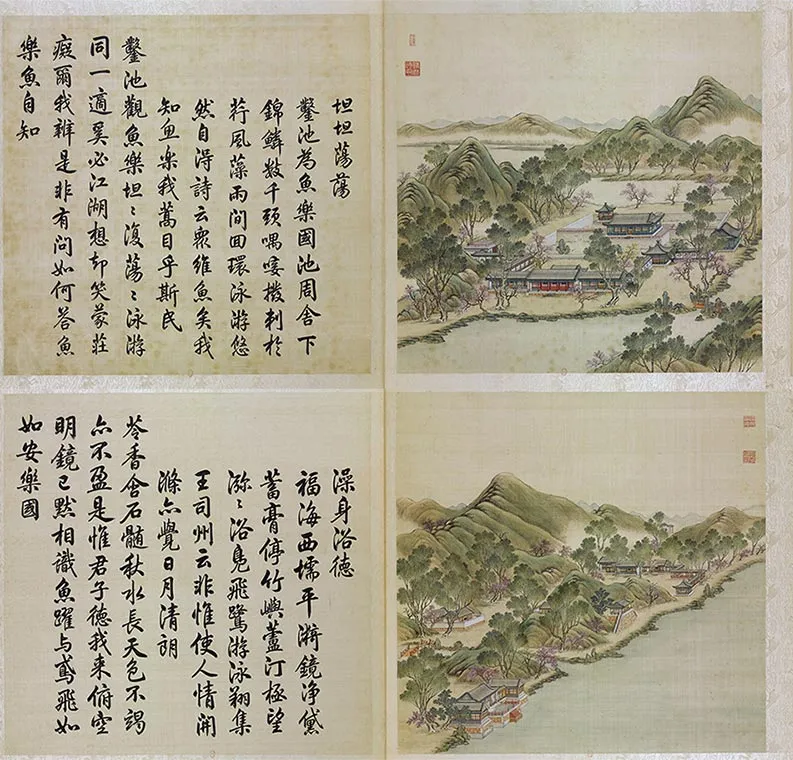 坦坦蕩蕩
鑿池為魚樂國池周舍下
錦鱗數千頭喁唼撥刺於
荇風藻雨間回環泳游悠
然自得詩云衆維魚矣我
知鱼樂我蒿目乎斯民
鑿池觀魚樂坦〻復蕩〻泳游
同一適奚必江湖想却笑蒙莊
癡爾我辨是非有問如何答魚
樂魚自知
澡身浴德
福海西壖平漪鏡净黛
蓄膏停竹嶼蘆汀極望
瀰〻浴鳧飛鷺游泳翔集
王司州云非惟使人情開
滌亦覺日月清朗
苓香含石髓秋水長天色不竭
亦不盈是惟君子德我来俯空
明鏡已默相識魚躍与鳶飛如
如安樂國